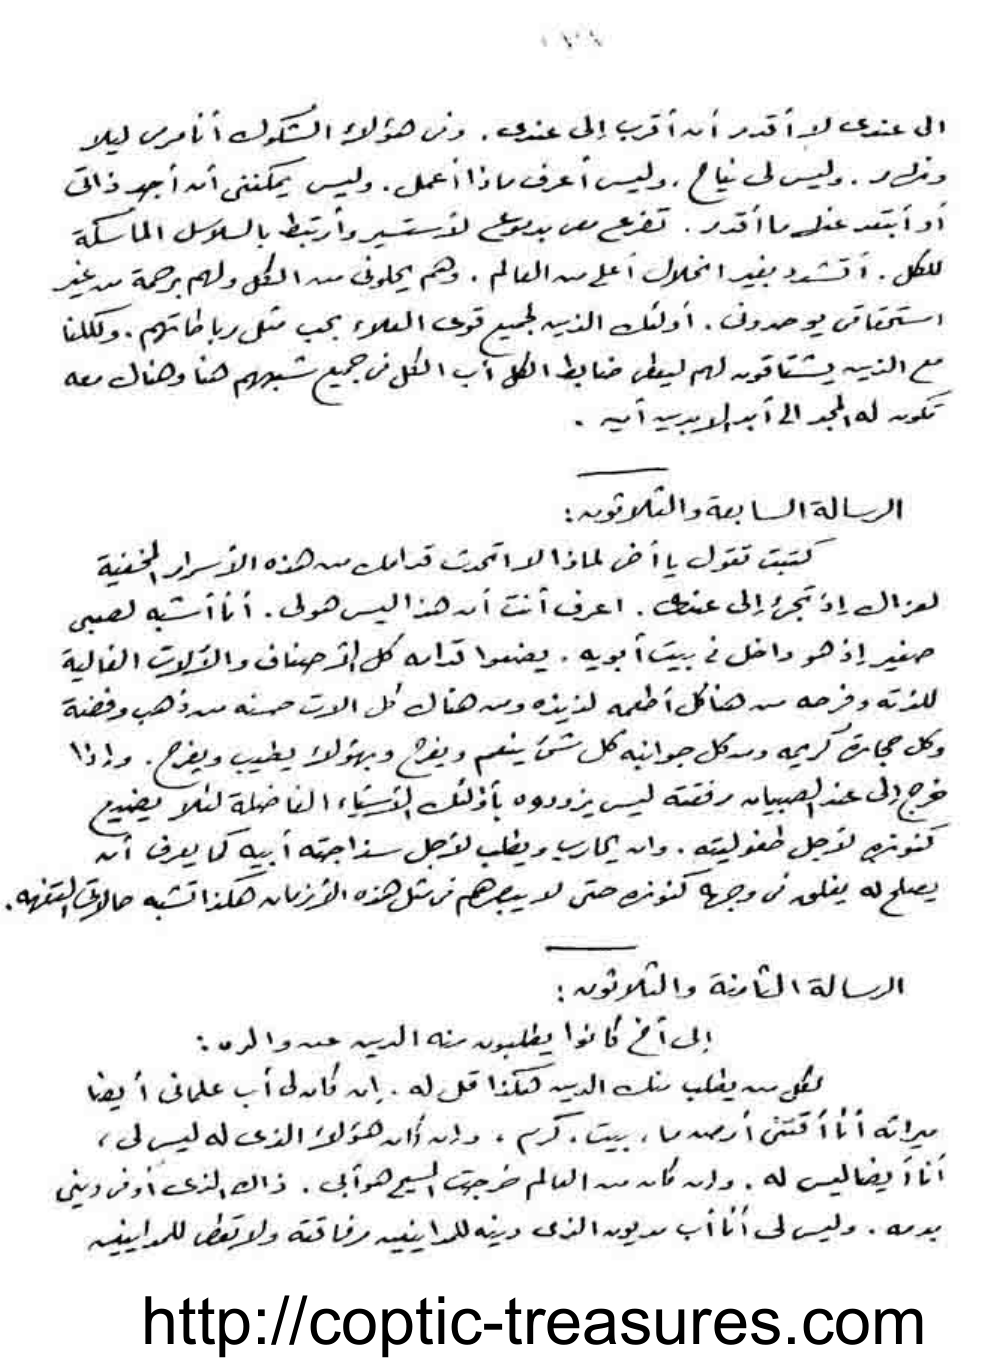 الى عندى لا أقدر أن أقرب إلى عندى. وفى هؤلاء الشكوك أنا مرمى ليلا
ونهار. وليس لى نياح، وليس أعرف ماذا أعمل. وليس يمكننى أن أجد ذاتى
أو أبتعد عنك ما أقدر. تضرع معى بدموع لأستسير وأرتبط بالسلاسل الماسكة
للكل. أتشدد بغير انحلال أعلى من العالم. وهم يحلونى من الكل ولهم برحمة من غير
استحقاق يوحدونى. أولئك الذين لجميع قوى العلاء بحب مثل رباطاتهم. وكلنا
مع الذين يشتاقون لهم ليعطى ضابط الكل أب الكل فى جميع شبههم هنا وهناك معه
تكون له المجد الى أبد الابدين أمين.
الرسالة السابعة والثلاثون:
كتبت تقول يا أخى لماذا لا اتحدث قدامك من هذه الأسرار المخفية
لعزاك إذ تجئ إلى عندى. اعرف أنت أن هذا ليس هو لى. أنا أشبه لصبى
صغير إذ هو داخل فى بيت أبويه. يضعوا قدامه كل الأصناف والآلات الغالية
للذته وفرحه من هنا كل أطعمه لذيذه ومن هناك كل الات حسنه من ذهب وفضة
وكل حجارة كريمه ومن كل جوانبه كل شئ ينعم ويفرح وبهؤلاء يطيب ويفرح. واذا
خرج إلى عند الصبيان رفقته ليس يزودوه بأولئك الأشياء الفاضلة لئلا يضيع
كنوزه لأجل طفوليته. وان يحارب ويطلب لأجل سذاجته أبيه كما يعرف أن
يصلح له يغلق فى وجهه كنوزه حتى لا يبصرهم فى مثل هذه الأزمان هكذا تشبه حالاتى التفهه.
الرسالة الثامنة والثلاثون:
إلى أخ كانوا يطلبون منه الدين عن والده:
لكل من يطلب منك الدين هكذا قل له. إن كان لى أب علمانى أيضا
ميراثه أنا أقتنى أرض ما، بيت، كرم، وإن كان هؤلاء الذى له ليس لى،
أنا أيضا ليس له. وان كان من العالم خرجت المسيح هو أبى. ذاك الذى أوفى دينى
بدمه. وليس لى أنا أب مديون الذى دينه للمداينين مرفاقته ولا تعطى للمداينين
http://coptic-treasures.com